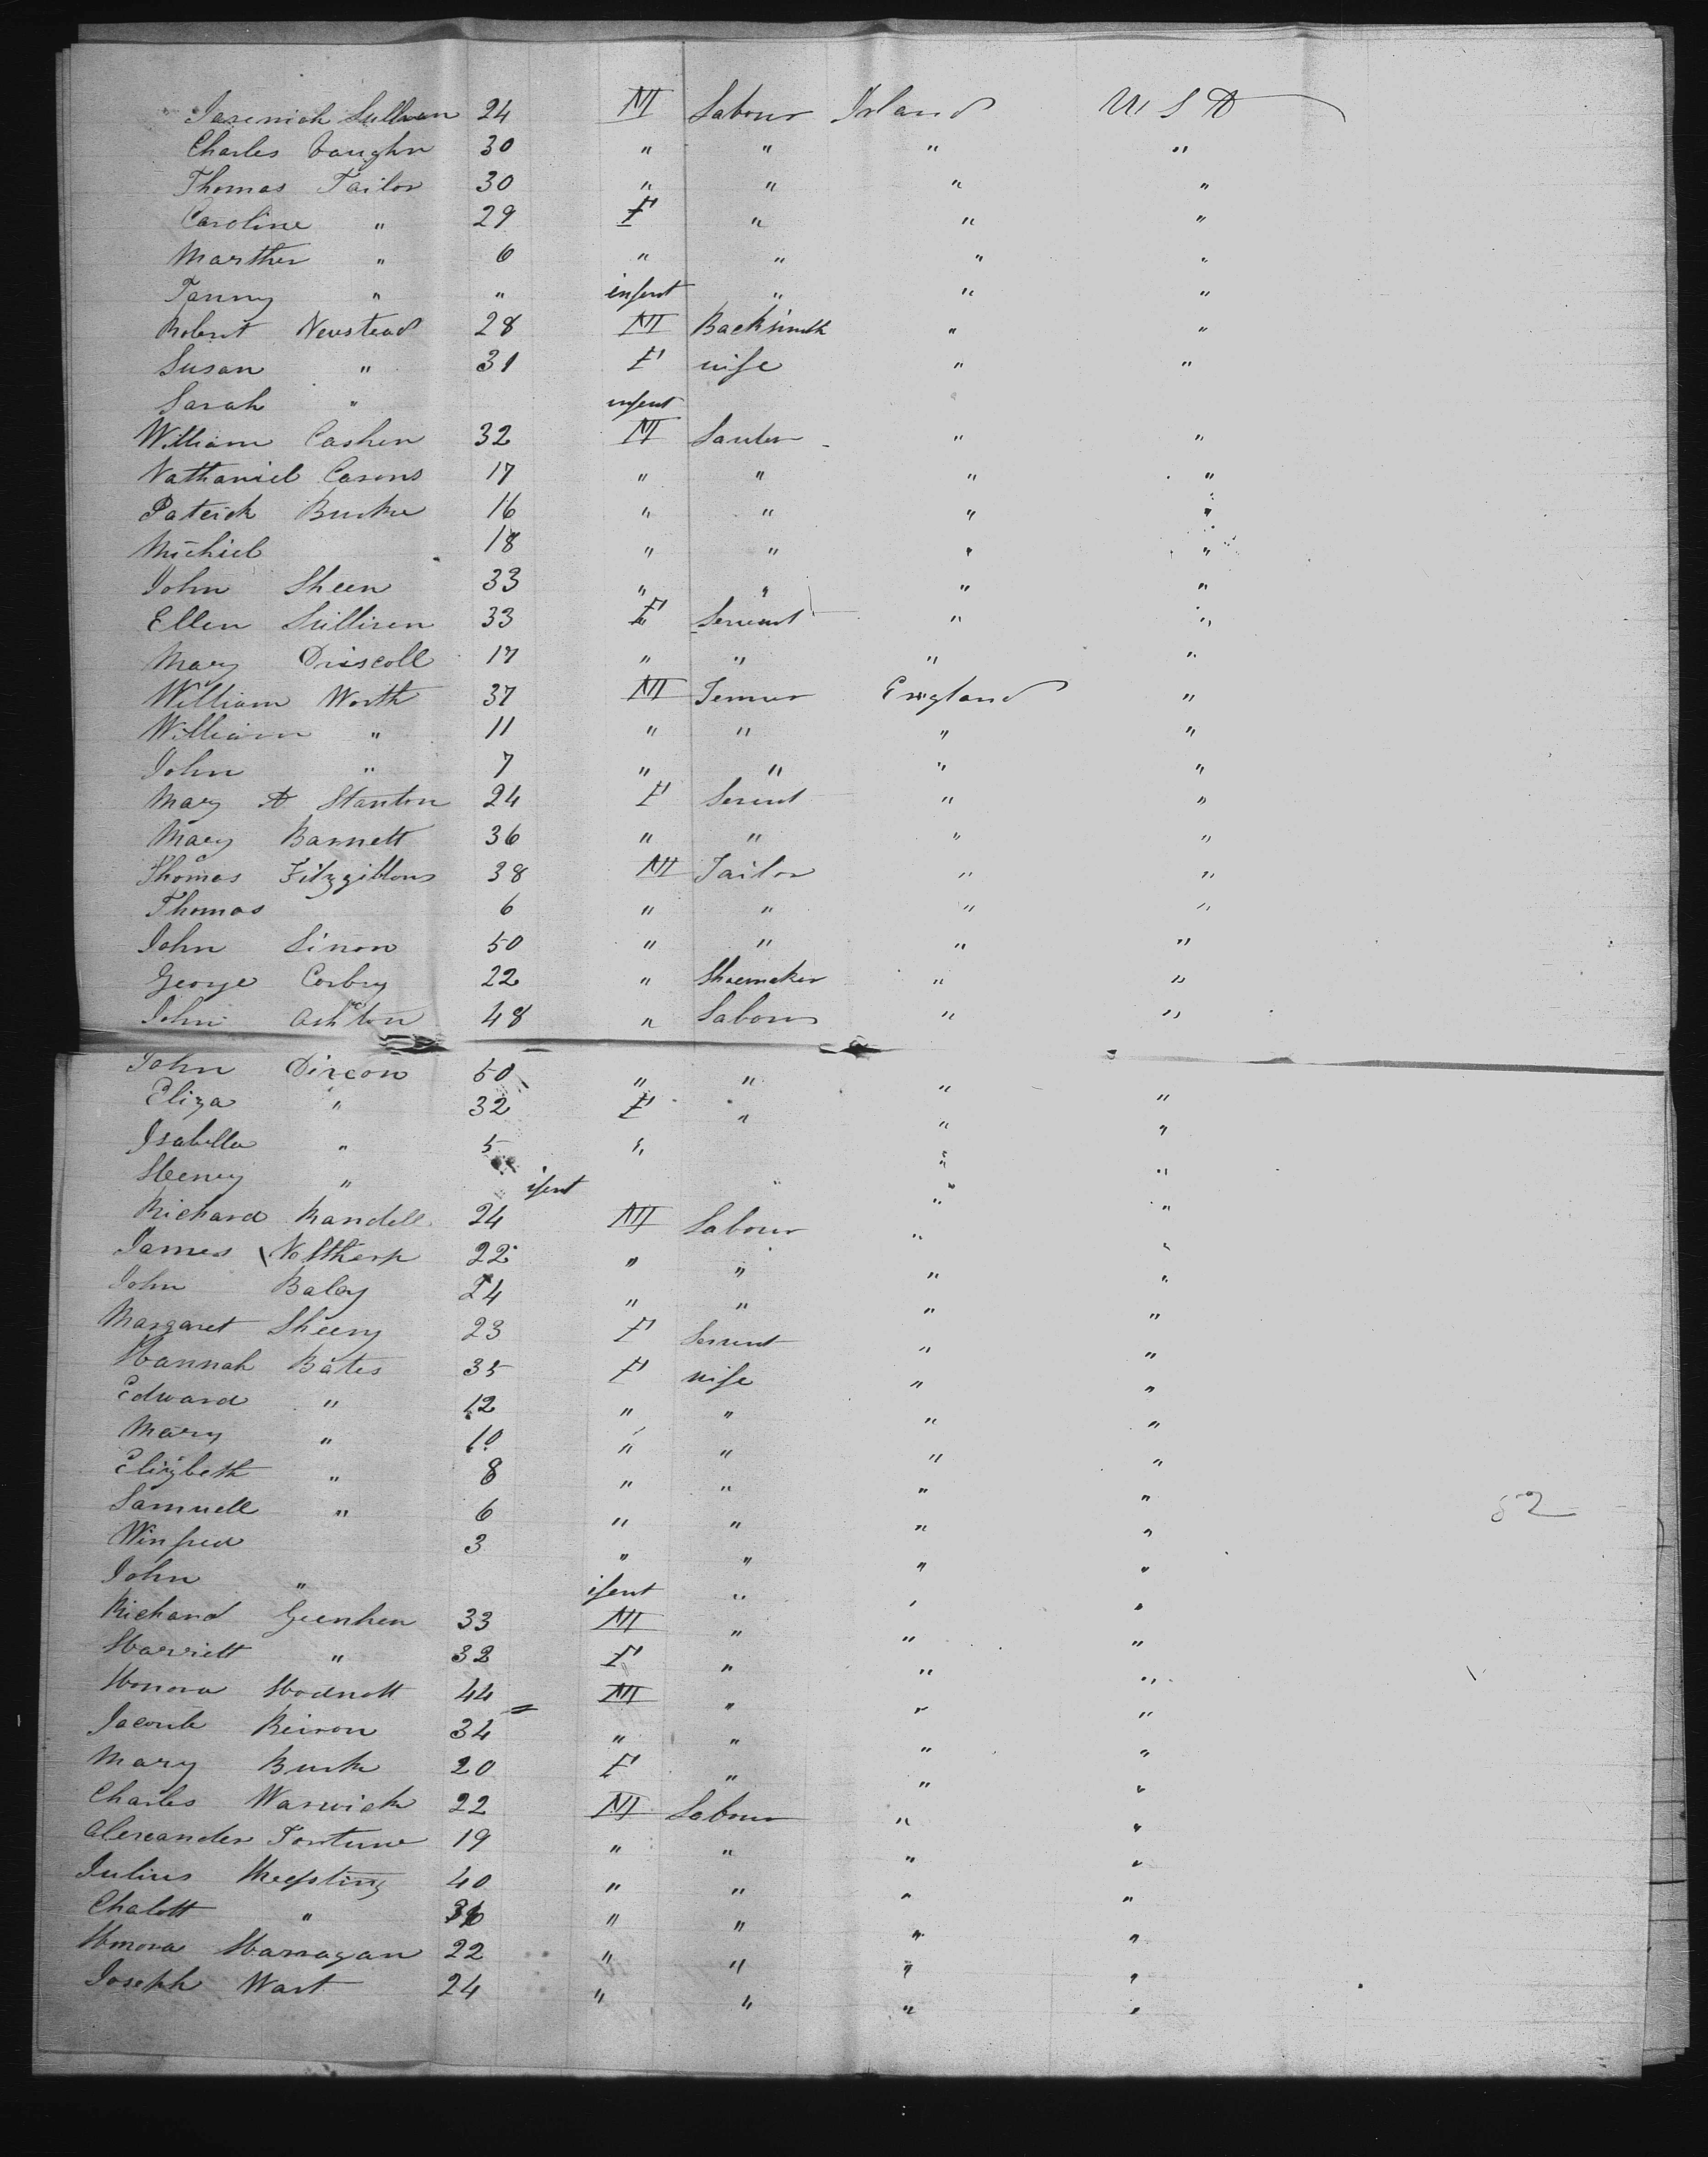 Jaremiah Sullivan 24 M Labour Irland U S A
Charles Vaughn 30 " " " "
Thomas Tailor 30 " " " "
Caroline " 29 F " " "
Marther " 6 " " " "
Fanny " " infent " " "
Robert Newstead 28 M Backsmith " "
Susan " 31 F wife " "
Sarah " infent
William Cashen 32 M " "
Nathaniel Casons 17 " " " "
Paterick Burke 16 " " " "
Michiel 18 " " " "
John Sheen 33 " " " "
Ellen Sulliven 33 F Servent " "
Mary Driscoll 17 " " " "
William Worth 37 M England "
William " 11 " " " "
John " 7 " " " "
Mary A Stanton 24 F Servent " "
Mary Barnett 36 " " " "
Thomas Fitzgibbons 38 M Tailor " "
Thomas 6 " " " "
John Sinon 50 " " " "
George Corbry 22 " Shoemeker " "
John Ashton 48 " Labour " "
John Dixcon 50 " " " "
Eliza " 32 F " " "
Isabella " 5 " " "
Heenry " ifent " "
Richard Randell 24 M Labour " "
James 22 " " " "
John Baley 24 " " " "
Margaret Sheeny 23 F Servent " "
Hannah Bates 35 F wife " "
Edward " 12 " " " "
Mary " 10 " " " "
Elizbeth " 8 " " " "
Samuell " 6 " " " " 52
Winfred 3 " " " "
John " ifent " " "
Richard Geenhen 33 M " " "
Harriett " 32 F " " "
Honora Hodnett 44 M " " "
Jacomb Reiron 34 " " " "
Mary Burk 20 F " " "
Charles Warwick 22 M Labour " "
Alexander Fortune 19 " " " "
Julius 40 " " " "
Chalott " " " " "
Honora Harragan 22 " " " "
Joseph Wart 24 " " " "